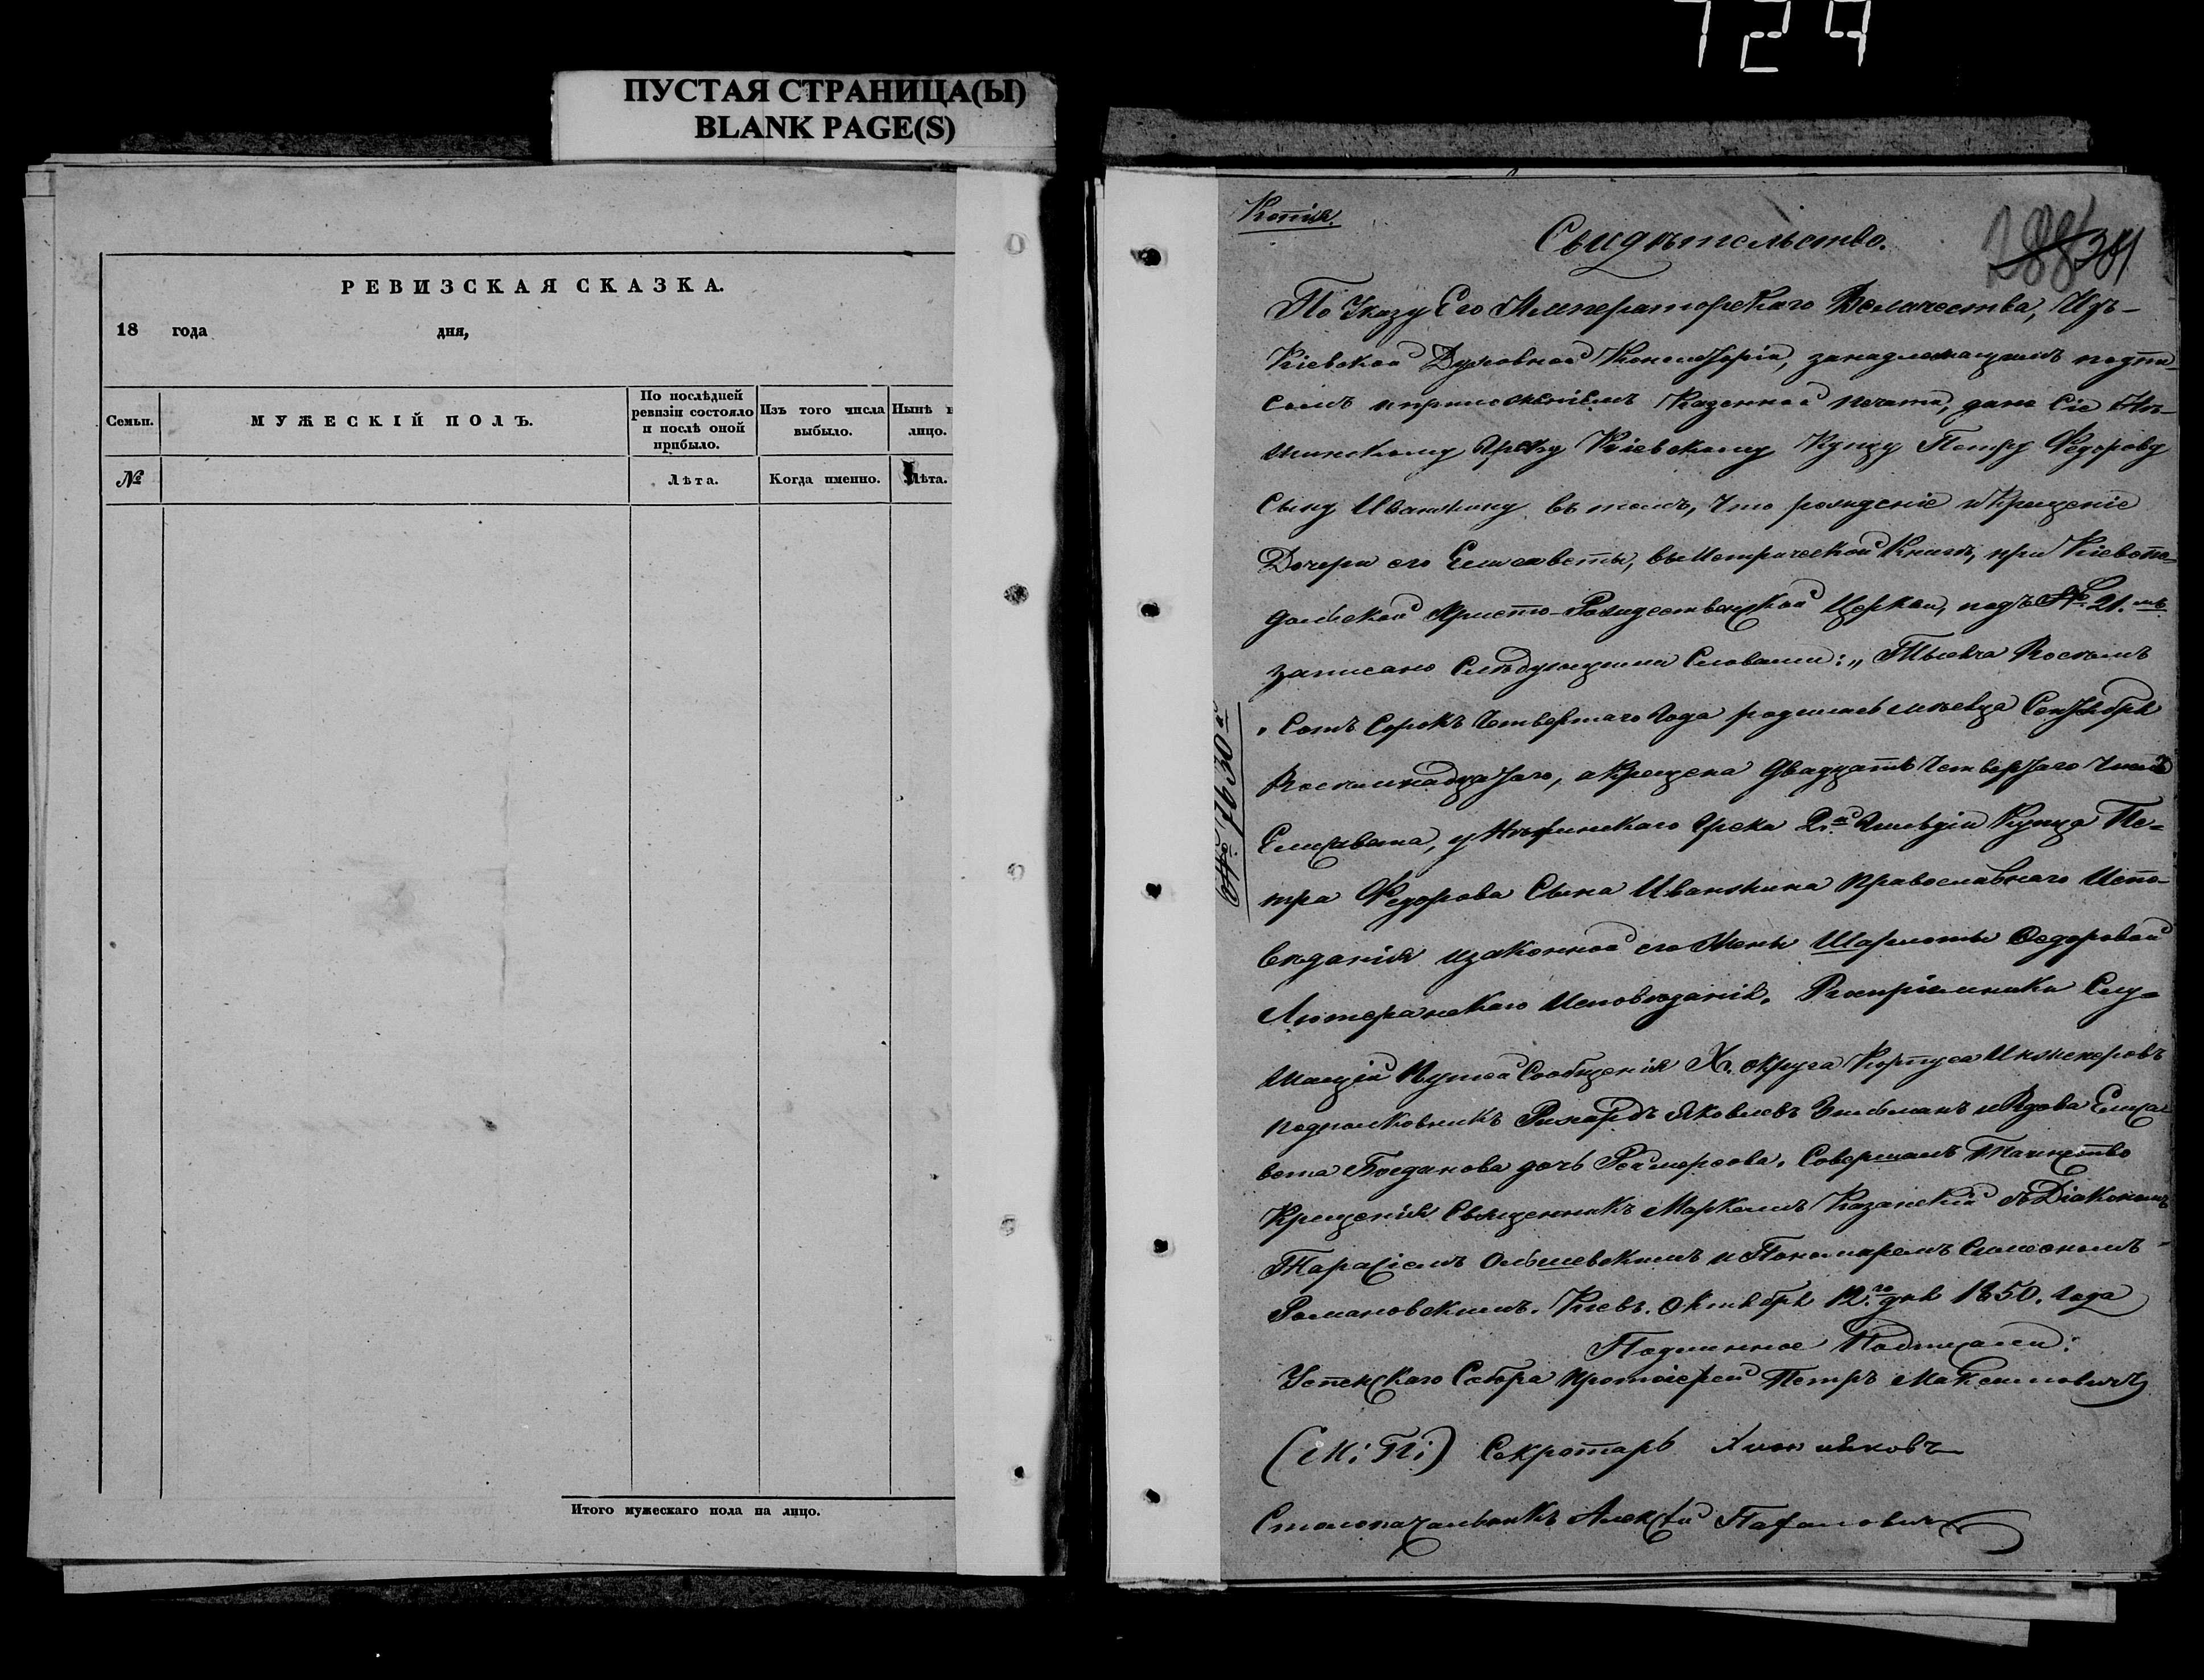 724
ПУСТАЯ СТРАНИЦА(Ы)
BLANK PAGE(S)
РЕВИЗСКАЯ СКАЗКА.
18 года дня,
Семьи.
МУЖЕСКІЙ ПОЛЪ.
По послѣдней ревизіи состояло и послѣ оной прибыло.
Изъ того числа выбыло.
Нынѣ н лицо.
№
Лѣта.
Когда именно.
Лѣта.
Итого мужескаго пола на лицо.
Копія.
288 381
Свидѣтельство.
По Указу Его Императорскаго Величества, Изъ-
Кіевской Духовной Консисторіи, занадлежащимъ подпи-
сомъ и приложеніемъ Казенной печати, дано Сіе Нѣ-
жинскому Греку Кіевскому Купцу Петру Федорову
Сыну Иванкину въ томъ, что рожденіе и Крещеніе
Дочери его Елисаветы, въ Метрической Книгѣ, при Кіевопо-
дольской Христо-Рождественской Церкви, подъ № 21.мъ
записано Слѣдующими Словами: „Тысяча Восемь
„Сотъ Сорокъ Четвертаго Года родилась мѣсяца Сентября
Восемнадцатаго, а Крещена двадцать четвертаго Числа
Елисавета, у Нѣжинскаго Грека 2.й Гильдіи Купца Пе-
тра Федорова Сына Иванкина Православнаго Испо-
вѣданія и законной его Жены Шарлоты Федоровой
Лютеранскаго Исповѣданія. Воспріемники Слу-
жащій Путей Сообщенія X. округа Корпуса Инженеровъ
подполковникъ Рихардъ Яковлевъ и Вдова Елиса-
вета Богданова дочь Реймерсова. Совершалъ Таинство
Крещенія Священникъ Маркелъ Казанскій съ Діакономъ
Тарасіемъ Ольшевскимъ и Пономаремъ Симеономъ
Романовскимъ. Кіевъ. Октября 12.го дня 1850. года
Подлинное Подписали:
Успенскаго Собора Протоіерей Петръ Максимовичъ
(М: П:) Секретарь
Столоначальникъ Алексѣй
№ 7630й